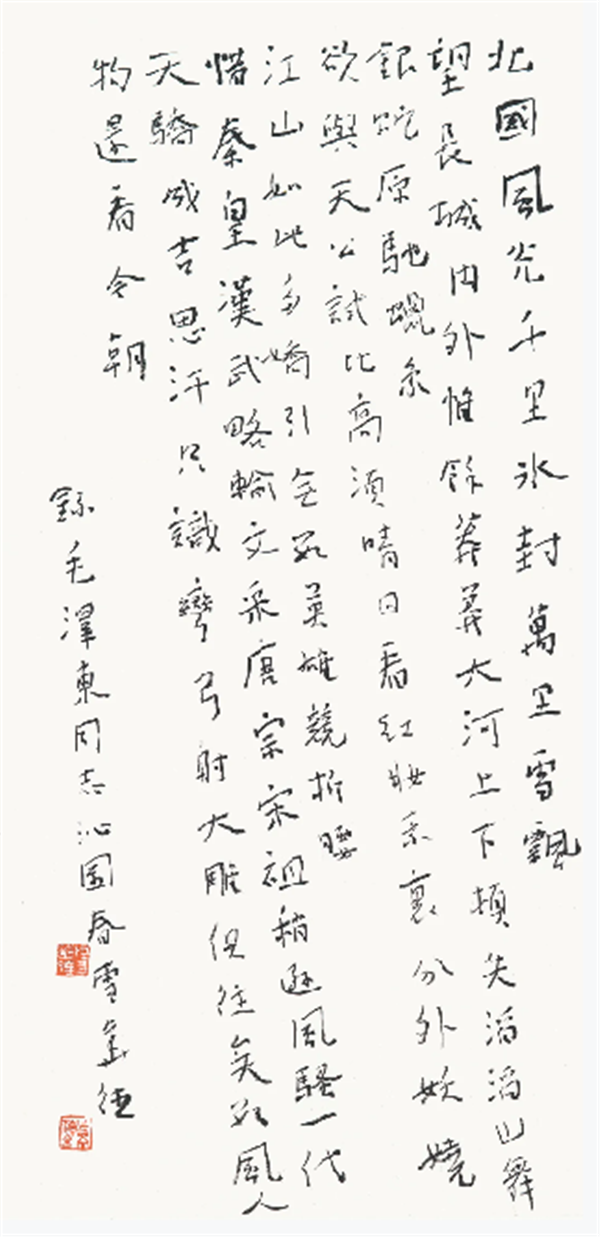 北國風光千里冰封萬里雪飄
望長城内外惟餘莽莽大河上下頓失滔滔山舞
銀蛇原馳蠟象
欲與天公試比高須晴日看紅妝素裹分外妖嬈
江山如此多嬌引無數英雄競折腰
惜秦皇漢武略輸文采唐宗宋祖稍遜風騷一代
天驕成吉思汗只識彎弓射大雕俱往矣數風人
物還看今朝
錄毛澤東同志沁園春雪